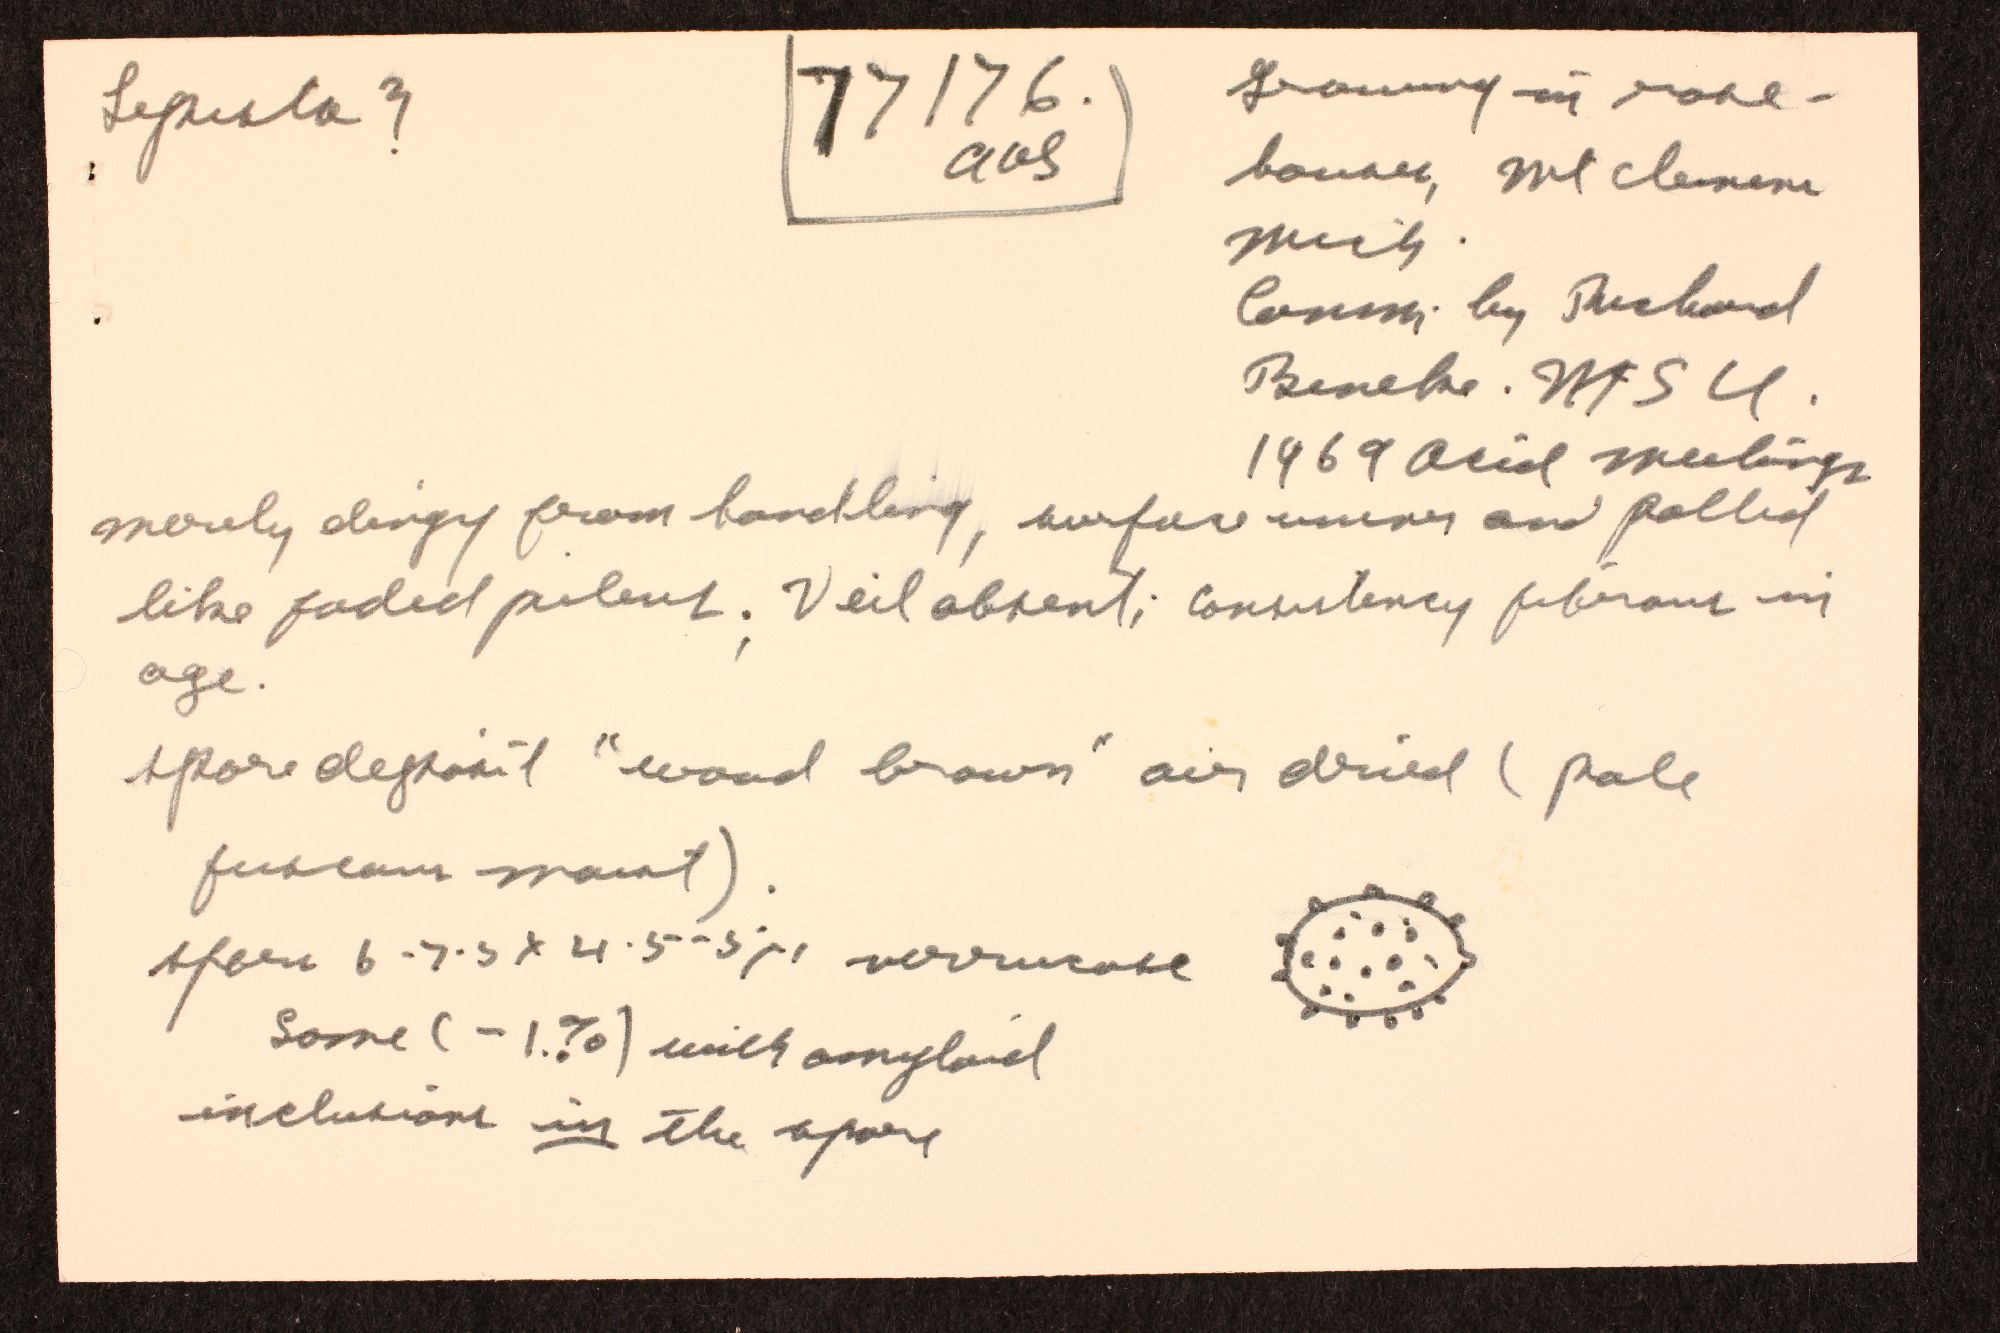 Lepista?
77176.
AHS
Growing in rose-
houses, Mt Clemens
Mich.
Comm. by Richard
Beneke. MSU.
1969 Acid meetings
merely dingy from handling, surface uneven and pallid
like faded pileus; Veil absent; consistency fibrous in
age.
spore deposit "wood brown" air dried (pale
fuscous moist).
spores 6-7.5 x 4.5-5 µ, verrucose
Some (-1.%) with amyloid
inclusions in the spore